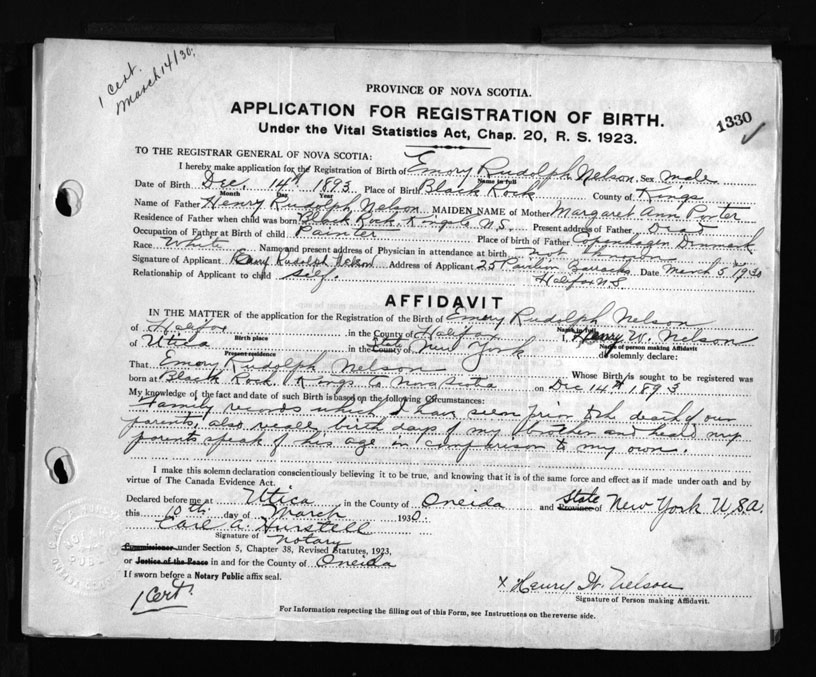 1 Cert.
March 14/30.
PROVINCE OF NOVA SCOTIA.
APPLICATION FOR REGISTRATION OF BIRTH.
1330
Under the Vital Statistics Act, Chap. 20, R. S. 1923.
TO THE REGISTRAR GENERAL OF NOVA SCOTIA:
I hereby make application for the Registration of Birth of Emory Rudolph Nelson. Sex male
Name in full
Date of Birth Dec. 14th 1893 Place of Birth Black Rock County of Kings
Month Day Year
Name of Father Henry Rudolph Nelson MAIDEN NAME of Mother Margaret Ann Porter
Residence of Father when child was born Black Rock, Kings Co N.S. Present address of Father Dead
Occupation of Father at Birth of child Painter Place of birth of Father Copenhagen Denmark
Race White Name and present address of Physician in attendance at birth not known
Signature of Applicant Emory Rudolph Nelson Address of Applicant 25 Pavilion Barracks Date March 5 1930
Relationship of Applicant to child self. Halifax N S
AFFIDAVIT
IN THE MATTER of the application for the Registration of the Birth of Emery Rudolph Nelson
Name in full
of Halifax in the County of Halifax I, Henry W. Nelson
Birth place Name of person making Affidavit
of Utica in the County State New York do solemnly declare:
Present residence
That Emory Rudolph Nelson Whose Birth is sought to be registered was
born at Black Rock, Kings Co Nova Scotia on Dec 14th 1893
My knowledge of the fact and date of such Birth is based on the following Circumstances:
Family records which I have seen prior to the death of our
parents, also recall birth days of my brother and heard my
parents speak of his age in comparison to my own.
I make this solemn declaration conscientiously believing it to be true, and knowing that it is of the same force and effect as if made under oath and by
virtue of The Canada Evidence Act.
Declared before me at Utica in the County of Oneida and Province State of New York U,S,A.
this 10th day of March 1930.
Carl A.
Signature of Notary
Commissioner under Section 5, Chapter 38, Revised Statutes, 1923,
or Justice of the Peace in and for the County of Oneida
If sworn before a Notary Public affix seal.
x Henry W. Nelson
Signature of Person making Affidavit.
1 Cert.
For Information respecting the filling out of this Form, see Instructions on the reverse side.